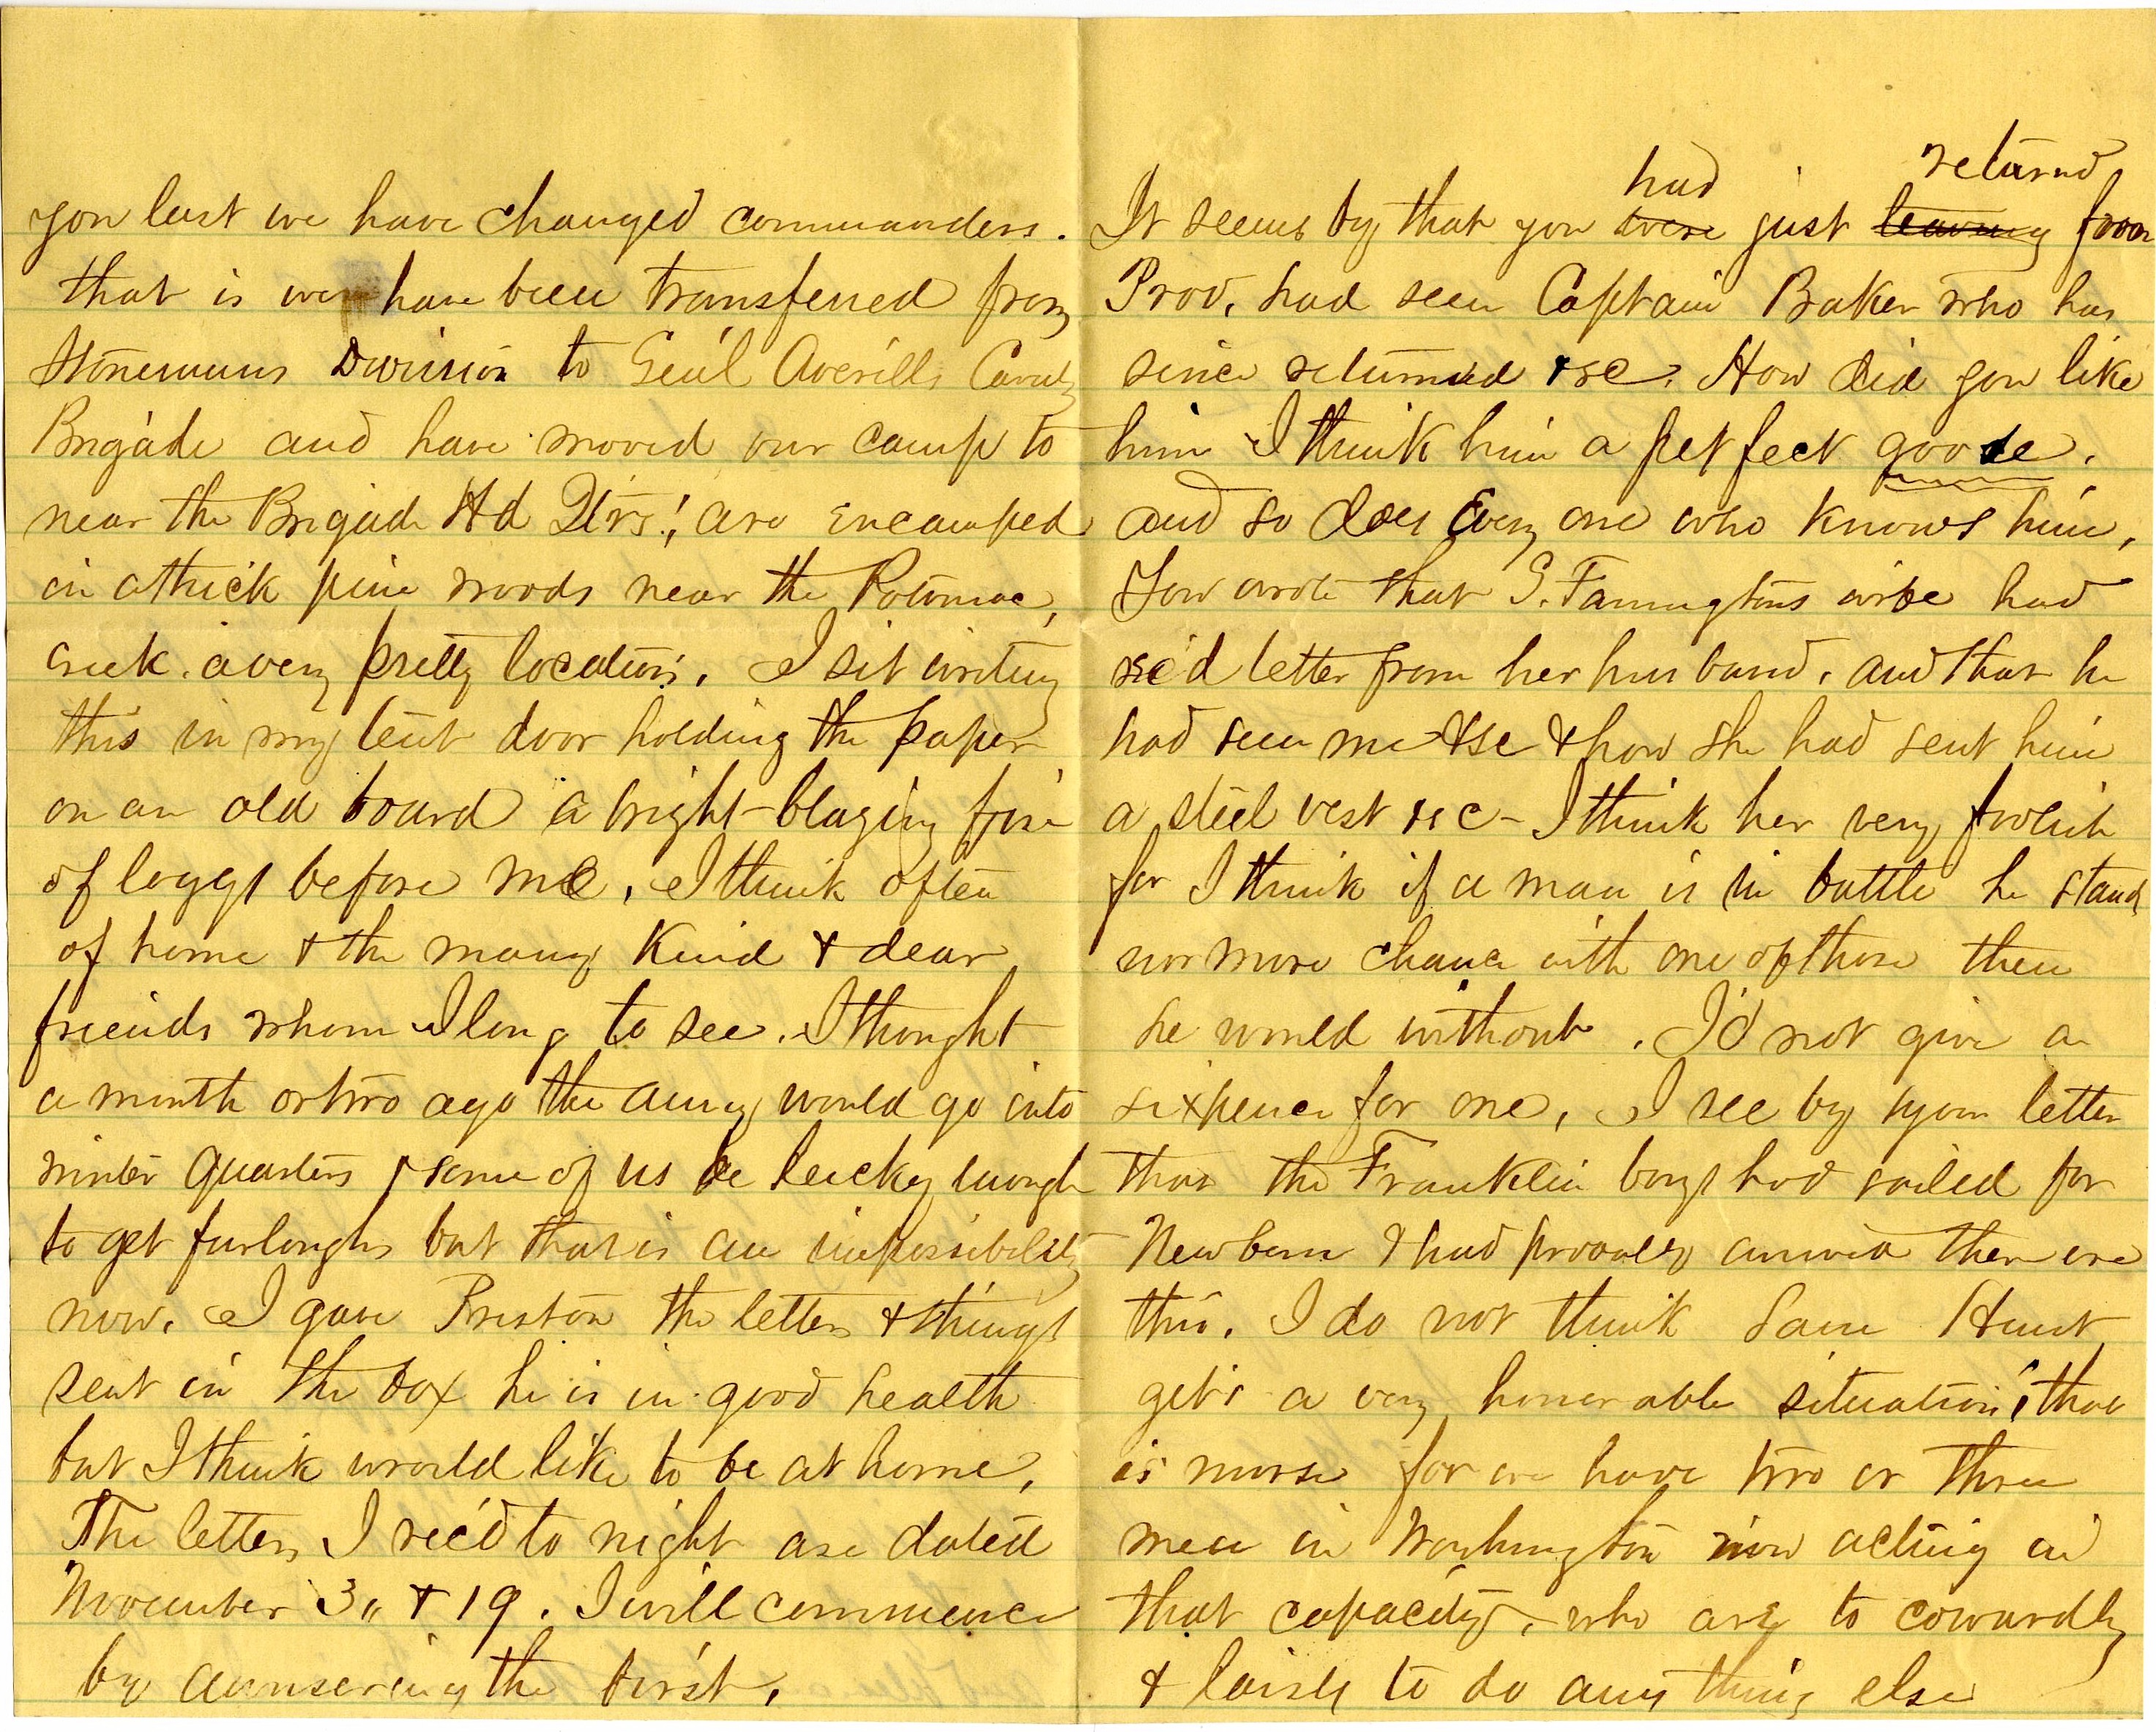 you last we have changed commanders.
that is we have been transfered from
Stonemans Division to Gen'l Averills Cavaly
Brigade and have moved our camp to
near the Brigade Hd Qtrs! are encamped
in a thick pine woods near the Potomac,
creek. a very pretty location. I sit writing
this in my tent door holding the paper
on an old board a bright-blazing fire
of loggs before me, I think often
of home & the many kind & dear
friends whom I long to see. I thought
a month or two ago the army would go into
winter quarters & some of us be lucky enough
to get furloughs but that is an impossibility
now. I gave Preston the letters & things
sent in the box he is in good health
but I think would like to be at home,
The letters I rec'd to night are dated
November 3" & 19. I will commence
by aunsering the first.
had returnd
It seems by that you were just leaving from
Prov. had seen Captain Baker who has
since returned &c. How did you like
him I think him a perfect goose.
and so does Every one who knows him,
You wrote that S. Farringtons wife had
rec'd letter from her husband. and that he
had seen me &c & how she had sent him
a steel vest &c - I think her very foolish
for I think if a man is in battle he stands
nor more chance with one of those then
he would without. I'd not give a
sixpence for one, I see by your letter
that the Franklin boys had sailed for
Newbern & had probaly arrived there ere
this. I do not think Sam Hunt
gets a very honorable situation, that
is nurse for we have two or three
men in Washington now acting in
that capacity, who are to cowardly
& laisy to do any thing else